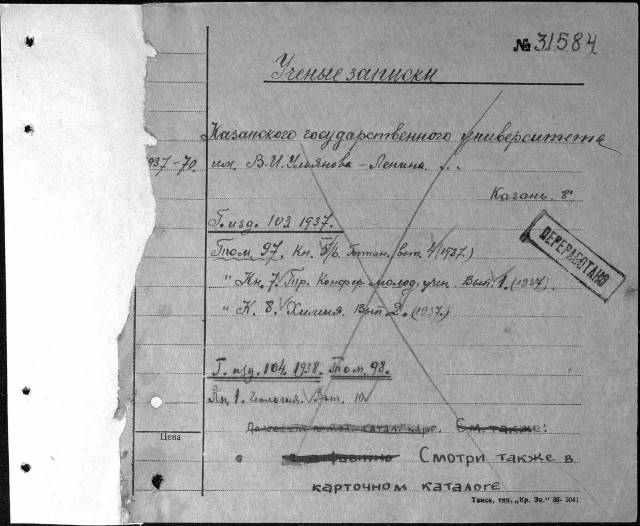 № 31584
Ученые записки
Казанского государственного университета
1937-70. им. В.И. Ульянова-Ленина ...
Казань. 8°
Г. изд. 103. 1937.
ПЕРЕРАБОТАНО
Том. 97. Кн. 5/6. Ботан. вып. 4 (1937.)
" Кн. 7. Тр. Конфер. молод. учен. Вып. 1. (1937).
" К. 8. Химия. Вып. 2. (1937.)
Г. изд. 104. 1938. Том. 98.
Кн. 1. Геология. Вып. 10
катал. карт. См. также:
Цена
Смотри также в
карточном каталоге
Томск, тип. „Кр. Зн." 36- 3041